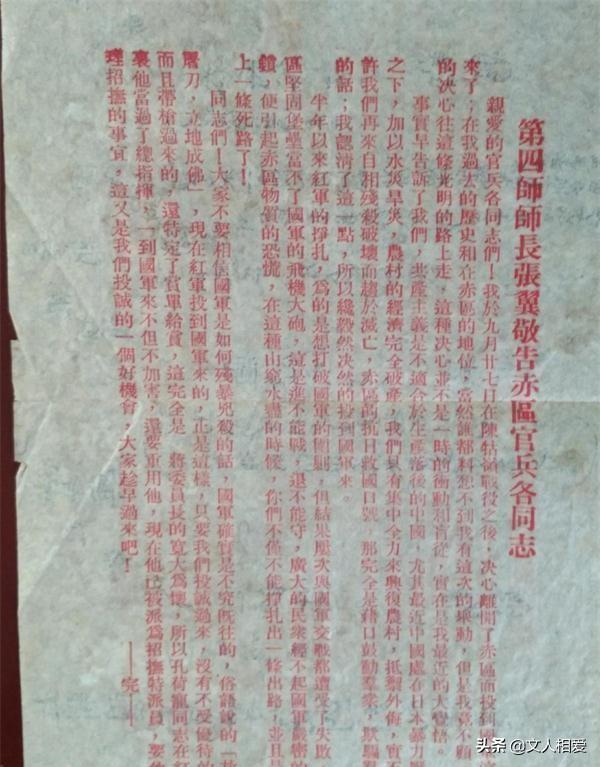 第四師師長張翼敬告赤區官兵各同志
親愛的官兵各同志們！我於九月廿七日在陳牯嶺戰役之後，决心離開了赤區而投到
來了；在我過去的歷史和在赤區的地位，當然誰都料想不到我有這次的舉動，但是我竟不顧
的决心往這條光明的路上走，這種决心並不是一時的衝動和盲從，實在是我最近的大覺悟。
事實早告訴了我們，共產主義是不適合於生產落後的中國，尤其最近中國處在日本暴力壓
之下，加以水災旱災，農村的經濟完全破產，我們只有集中全力來興復農村，抵禦外侮，實不
許我們再來自相殘殺破壞而趨於滅亡，赤區的抗日救國口號，那完全是藉口鼓動羣衆，欺騙
的話；我認清了這一點，所以纔毅然决然的投到國軍來。
半年以來紅軍的掙扎，為的是想打破國軍的圍剿，但結果屢次與國軍交戰都遭受了失敗，
區堅固堡壘當不了國軍的飛機大砲，這是進不能戰，退不能守，廣大的民衆經不起國軍嚴密的
鎖，便引起赤區物質的恐慌，在這種山窮水盡的時候，你們不僅不能掙扎出一條出路，並且是
上一條死路了！
同志們！大家不要相信國軍是如何殘暴兇殺的話，國軍確實是不究既往的，俗語說的「放
屠刀，立地成佛」，現在紅軍投到國軍來的，正是這樣，只要我們投誠過來，沒有不受優待的
而且帶槍過來的，還特定了賞單給賞，這完全是　蔣委員長的寬大為懷，所以孔荷寵同志在紅
裏他當過了總指揮，一到國軍來不但不加害，還要重用他，現在他已被派為招撫特派員，要
理招撫的事宜，這又是我們投誠的一個好機會，大家趁早過來吧！
——完——
头条 @文人相爱